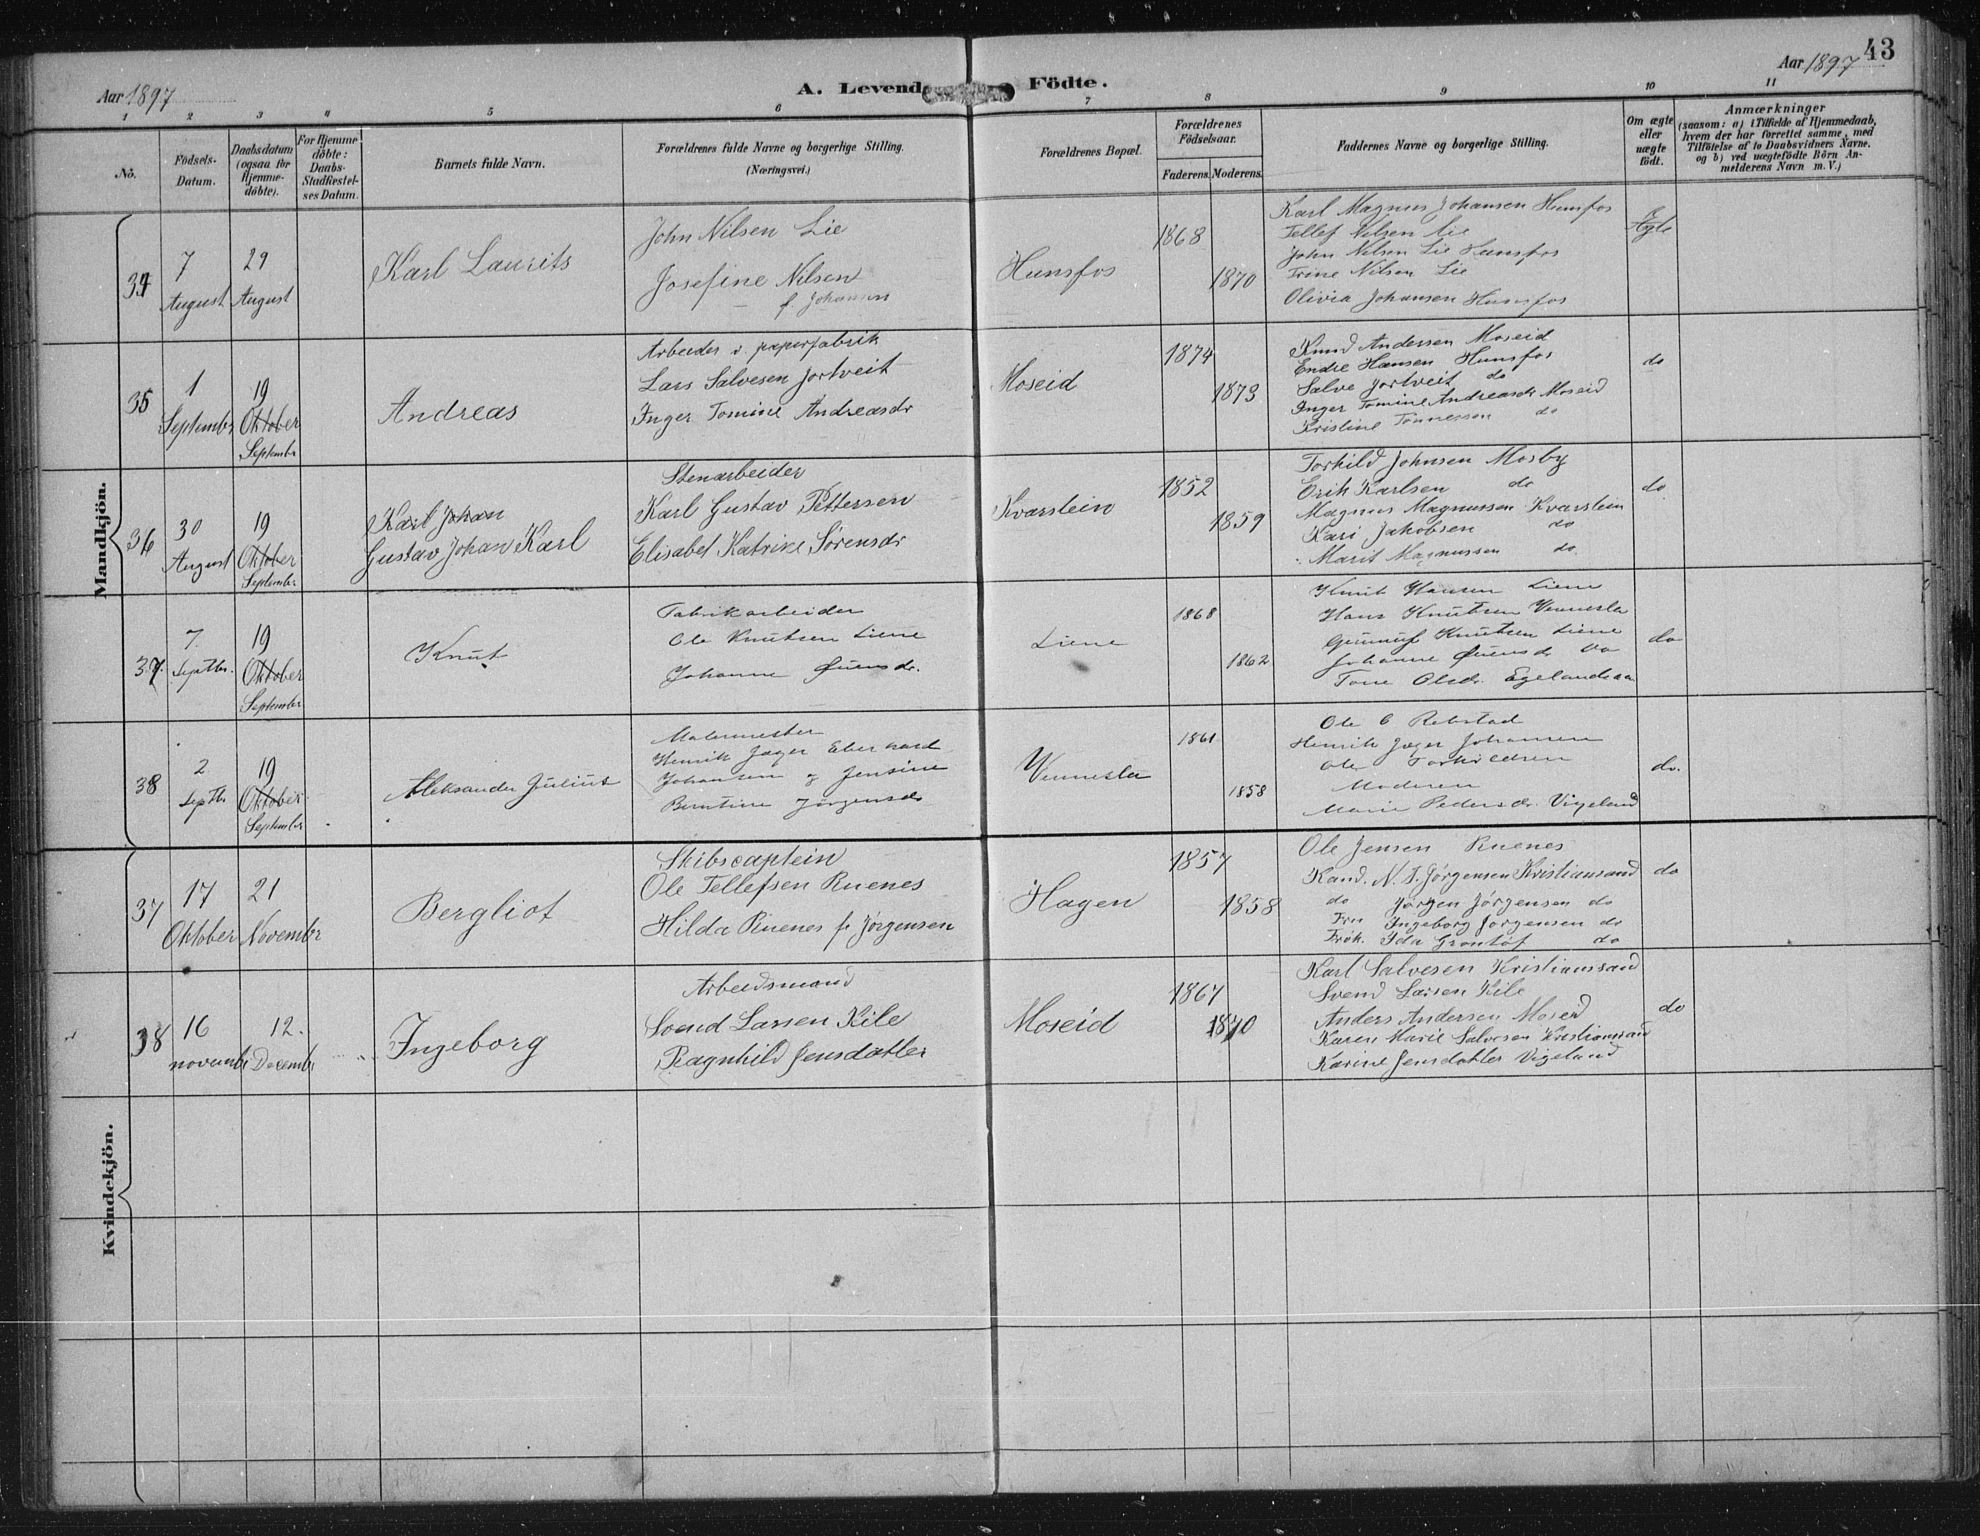 Aar 1897
A. Levende Födte.
Aar 1897
43
1 2 3 4 5 6 7 8 9 10 11
No.
Födsels-Datum.
Daabsdatum (ogsaa for Hjemme-döbte).
For Hjemme-döbte: Daabs-Stadfæstel-ses Datum.
Barnets fulde Navn.
Forældrenes fulde Navne og borgerlige Stilling.
(Næringsvei.)
Forældrenes Bopæl.
Forældrenes Födselsaar.
Faderens. Moderens.
Faddernes Navne og borgerlige Stilling.
Om ægte eller uægte födt.
Anmærkninger
(saasom: a) i Tilfælde af Hjemmedaab, hvem der har forrettet samme, med Tilföielse af to Daabsvidners Navne, og b) ved uægtefödte Börn An-melderens Navn m. V.)
Mandkjön.
34
7 August
29 August
Karl Laurits
John Nilsen Lie
Josefine Nilsen
f. Johansen
Hunsfos
1868
1870
Karl Magnus Johansen Hunsfos
Tellef Nilsen Lie
John Nilsen Lie Hunsfos
Trine Nilsen Lie
Olivia Johansen Hunsfos
Ægte
35
1 Septembr
19 Oktober
Septembr
Andreas
Arbeider v. paperfabrik
Lars Salvesen Jortveit
Inger Tomine Andreasdr
Moseid
1874
1873
Knud Andersen Moseid
Endre Hansen Hunsfos
Salve Jortveit do
Inger Tomine Andreasdr Moseid
Kristine Tønnessen do
do
36
30 August
19 Oktober
Septembr
Karl Johan
Gustav Johan Karl
Stenarbeider
Karl Gustav Pettersen
Elisabet Katrine Sørensdr
Kvarstein
1852
1859
Torkild Johnsen Mosby
Erik Karlsen do
Magnus Magnussen Kvarstein
Kari Jakobsen do
Marit Magnussen do.
do
37.
7. Septbr.
19 Oktober
Septembr
Knut
Fabrikarbeider
Ole Knutsen Liene
Johanne
Liene
1868
1862
Knut Hansen Liene
Hans Knutsen Vennesla
Gunnuf Knutsen Liene
Johanne do
Tone Olsdr. Egelandsaa
do
38
2 Septbr
19 Oktober
Septembr
Aleksander Julius
Malermester
Henrik Jæger Eberhard
Johansen og Jensine
Berntine Jørgensdr
Vennesla
1861
1858
Ole O Rebstad
Henrik Jæger Johansen
Ole Torkildsen
Moderen
Marie Pedersdr. Vigeland
do.
Kvindekjön.
37
17 Oktober
21 Novembr
Bergliot
Skibscaptein
Ole Tellefsen Ruenes
Hilda Ruenes f. Jørgensen
Hagen
1857
1858
Ole Jensen Ruenes
Kand. N. J. Jørgensen Kristiansand
do Jørgen Jørgensen do
Fru Ingeborg Jørgensen do
Frøk. Ida Grontof do
do
38
16 novembr
12. Decembr
Ingeborg
Arbeidsmand
Svend Larsen Kile
Ragnhild Jensdatter
Moseid
1867
1870
Karl Salvesen Kristianssand
Svend Larsen Kile
Anders Andersen Moseid
Karen Marie Salvesen Kristianssand
Karine Jensdatter Vigeland
do